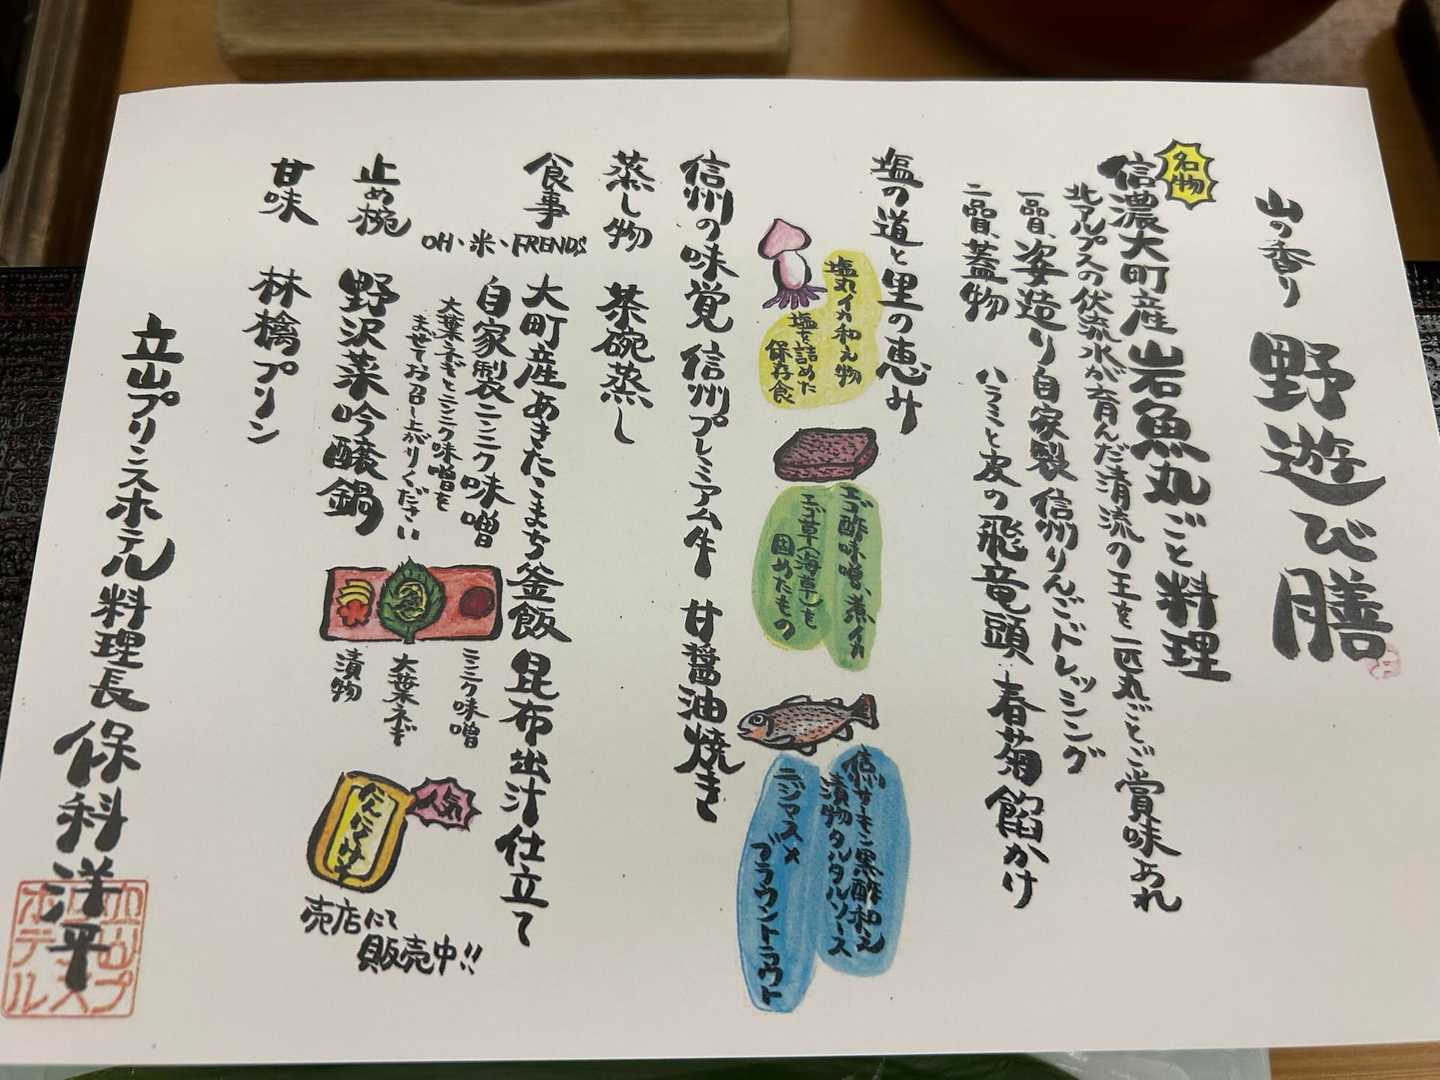 山の香り 野遊び膳
名物
信濃大町産 岩魚丸ごと料理
北アルプスの伏流水が育んだ清流の王を一匹丸ごとご賞味あれ
一皿目、姿造り 自家製 信州りんごドレッシング
二皿目、蓋物 ハラミと皮の飛竜頭、春菊餡かけ
塩の道と里の恵み
塩丸イカ和え物
塩を詰めた
保存食
エゴ酢味噌、煮イカ
エゴ草(海草)を
固めたもの
信州サーモン黒酢和え
漬物タルタルソース
ニジマス×
ブラウントラウト
信州の味覚 信州プレミアム牛 甘醤油焼き
蒸し物 茶碗蒸し
食事 大町産あきたこまち釜飯 昆布出汁仕立て
OH、米、FRENDS
自家製ニンニク味噌
大葉ネギとニンニク味噌を
まぜてお召し上がりください
ニンニク味噌
大葉ネギ
漬物
止め椀 野沢菜吟醸鍋
人気
にんにくみそ
売店にて
販売中!!
甘味 林檎プリン
立山プリンスホテル料理長 保科洋平